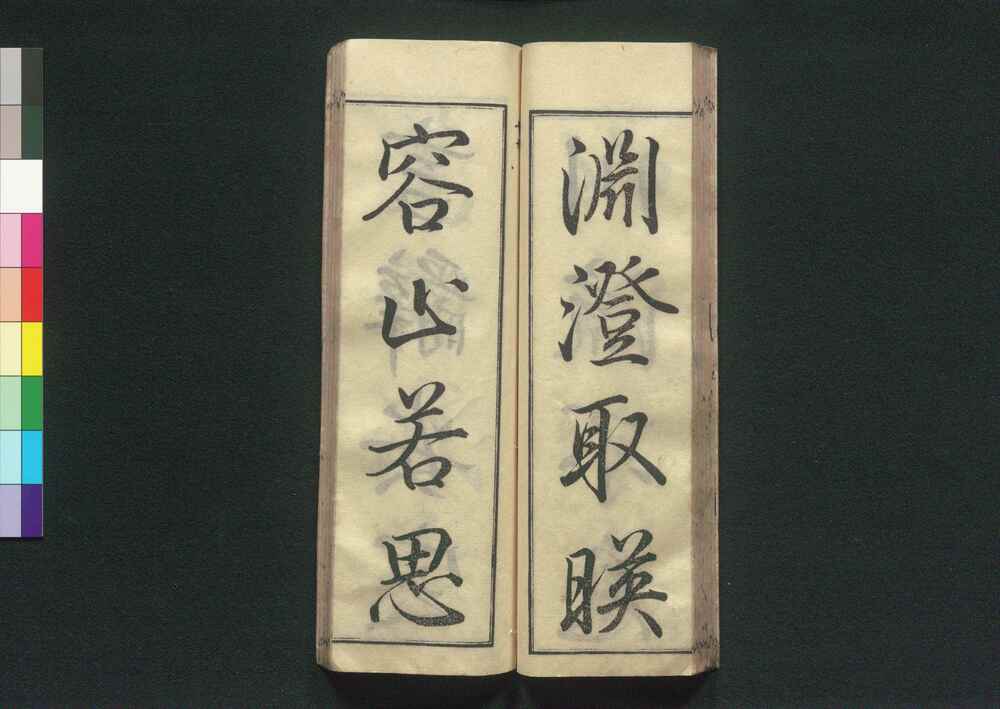 淵澄取暎
容止若思